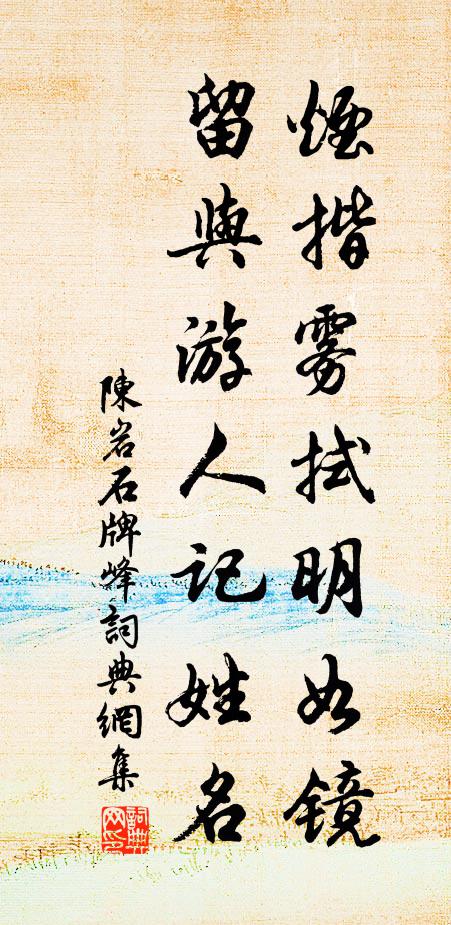 煙揩雾拭明如镜
留與游人记姓名
陳岩石牌峰詞典網集
詞典网